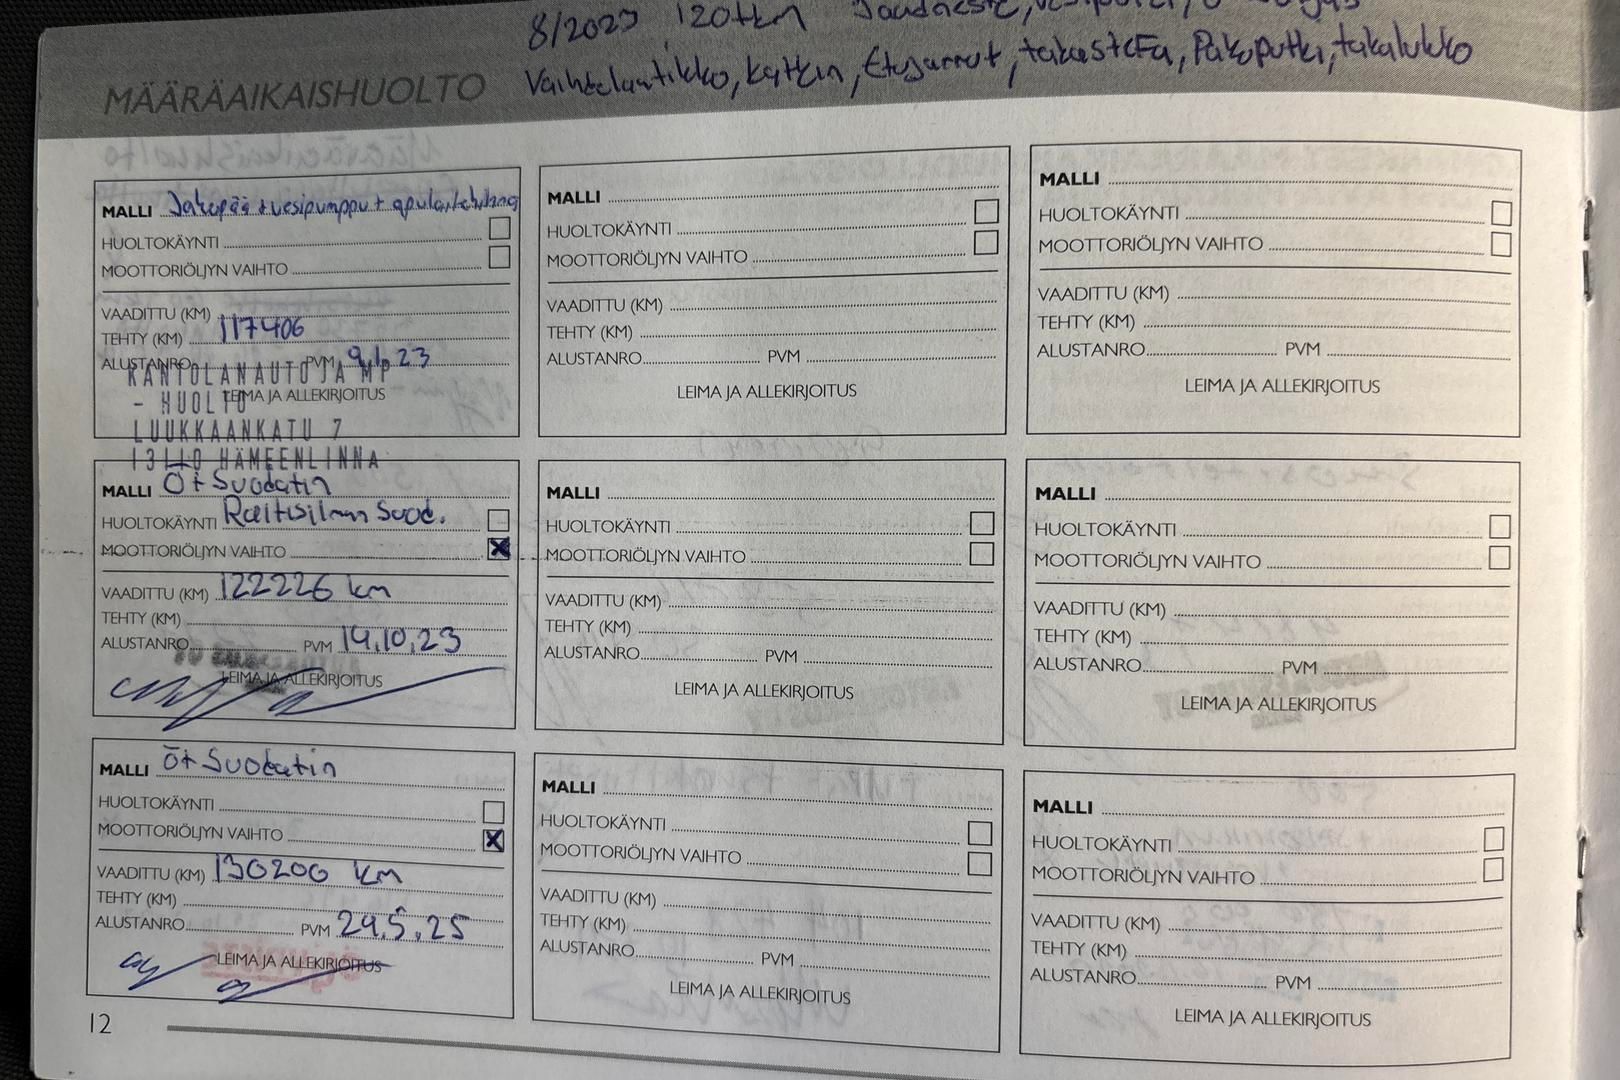 8/2023 120tkm
MÄÄRÄAIKAISHUOLTO
Vaihdelaatikko, kytkin, Etujarrut, takastefa, Pakoputki, takalukko
MALLI Jakopää + vesipumppu +
HUOLTOKÄYNTI
MOOTTORIÖLJYN VAIHTO
VAADITTU (KM)
TEHTY (KM) 117406
ALUSTANRO PVM 9.1.23
LEIMA JA ALLEKIRJOITUS
KANTOLAN AUTO JA MP
- HUOLTO
LUUKKAANKATU 7
13110 HÄMEENLINNA
MALLI
HUOLTOKÄYNTI
MOOTTORIÖLJYN VAIHTO
VAADITTU (KM)
TEHTY (KM)
ALUSTANRO PVM
LEIMA JA ALLEKIRJOITUS
MALLI
HUOLTOKÄYNTI
MOOTTORIÖLJYN VAIHTO
VAADITTU (KM)
TEHTY (KM)
ALUSTANRO PVM
LEIMA JA ALLEKIRJOITUS
MALLI Öt Suodatin
HUOLTOKÄYNTI Raitisilman Suod.
MOOTTORIÖLJYN VAIHTO X
VAADITTU (KM) 122226 km
TEHTY (KM)
ALUSTANRO PVM 19.10.23
LEIMA JA ALLEKIRJOITUS
MALLI
HUOLTOKÄYNTI
MOOTTORIÖLJYN VAIHTO
VAADITTU (KM)
TEHTY (KM)
ALUSTANRO PVM
LEIMA JA ALLEKIRJOITUS
MALLI
HUOLTOKÄYNTI
MOOTTORIÖLJYN VAIHTO
VAADITTU (KM)
TEHTY (KM)
ALUSTANRO PVM
LEIMA JA ALLEKIRJOITUS
MALLI Öt Suodatin
HUOLTOKÄYNTI
MOOTTORIÖLJYN VAIHTO X
VAADITTU (KM) 130200 km
TEHTY (KM)
ALUSTANRO PVM 29.5.25
LEIMA JA ALLEKIRJOITUS
MALLI
HUOLTOKÄYNTI
MOOTTORIÖLJYN VAIHTO
VAADITTU (KM)
TEHTY (KM)
ALUSTANRO PVM
LEIMA JA ALLEKIRJOITUS
MALLI
HUOLTOKÄYNTI
MOOTTORIÖLJYN VAIHTO
VAADITTU (KM)
TEHTY (KM)
ALUSTANRO PVM
LEIMA JA ALLEKIRJOITUS
12